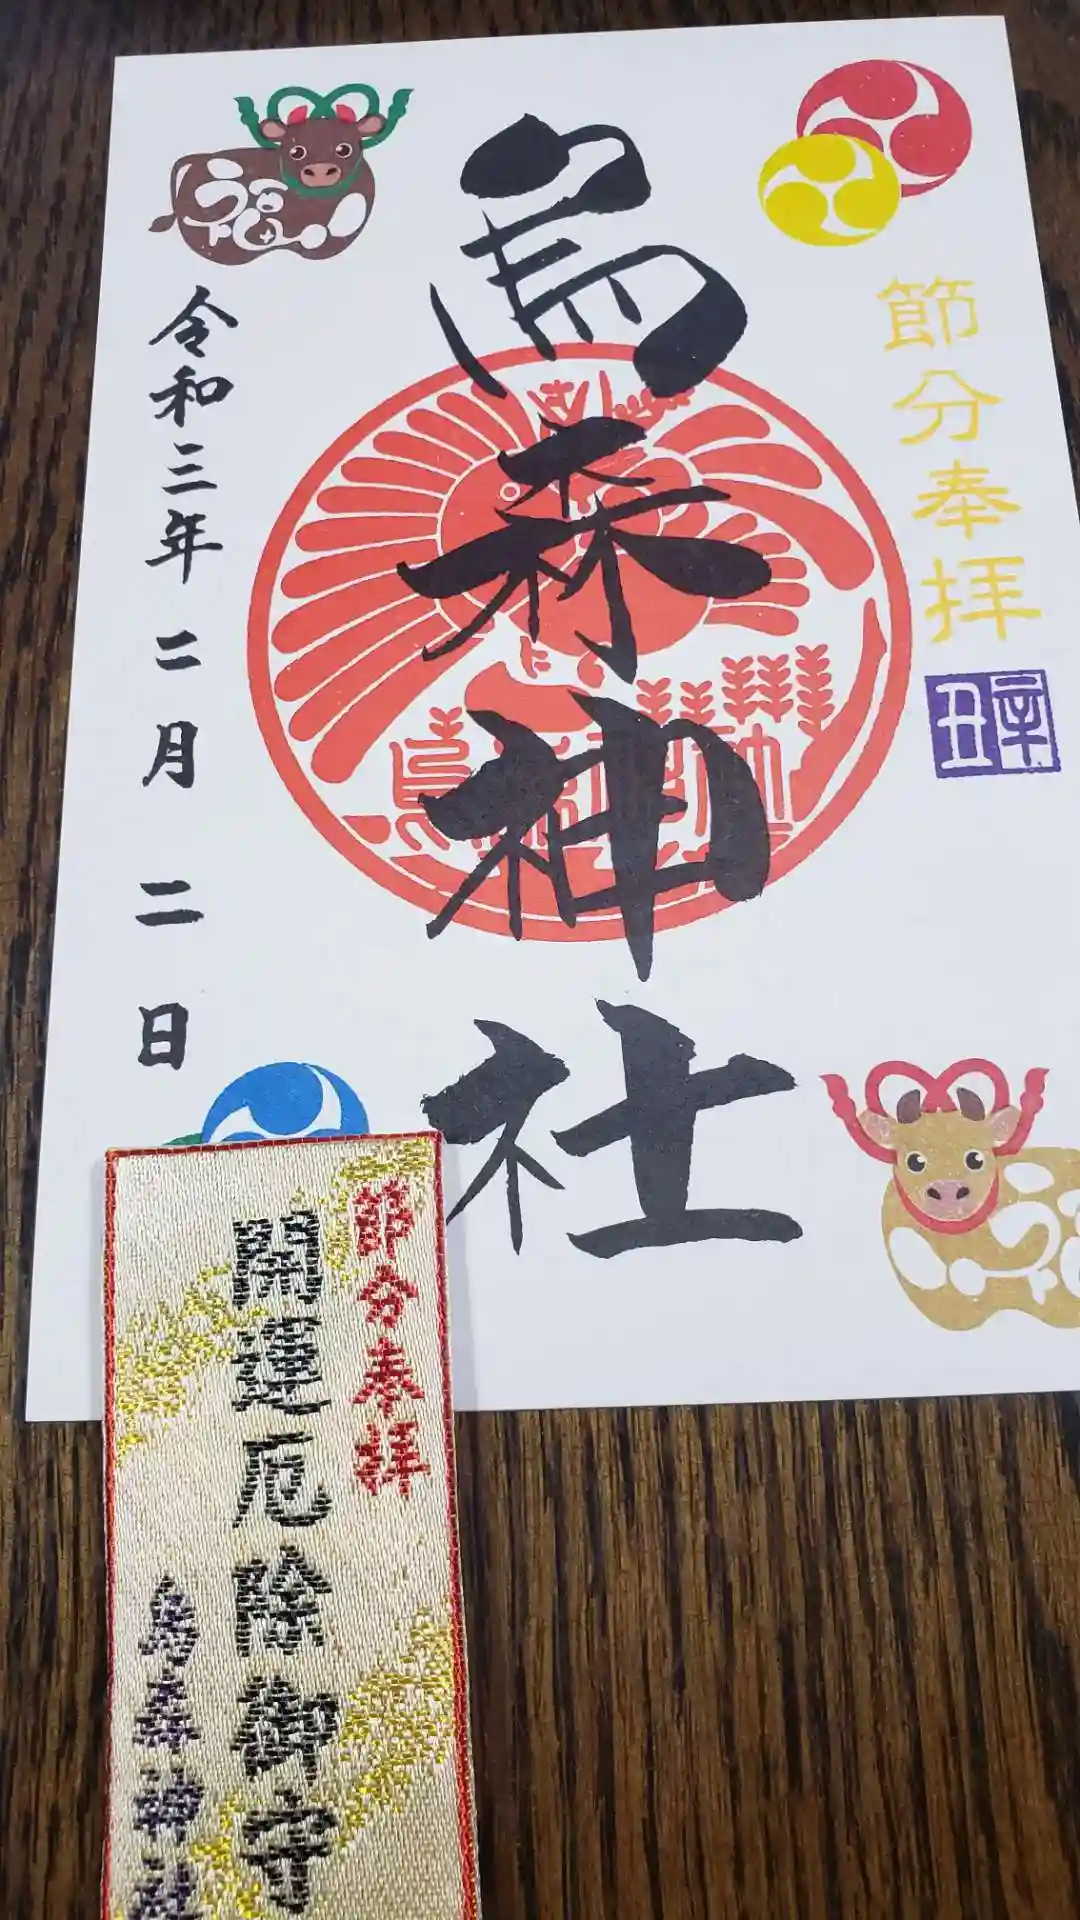 節分奉拝
辛丑
烏森神社
福
令和三年二月二日
節分奉拝
開運厄除御守
烏森神社